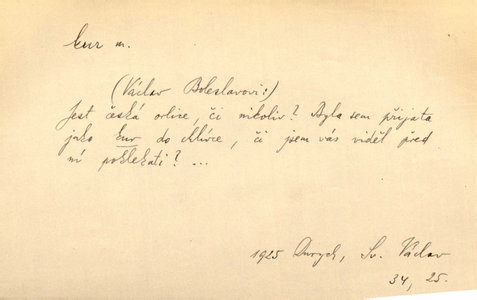 kur m.
(Václav Boleslavovi:)
Jest česká orlice, či nikoliv? Byla sem přijata
jako kur do klece, či jsem vás viděl před
ní poklekati? ...
1925 Durych, Sv. Václav
34, 25.